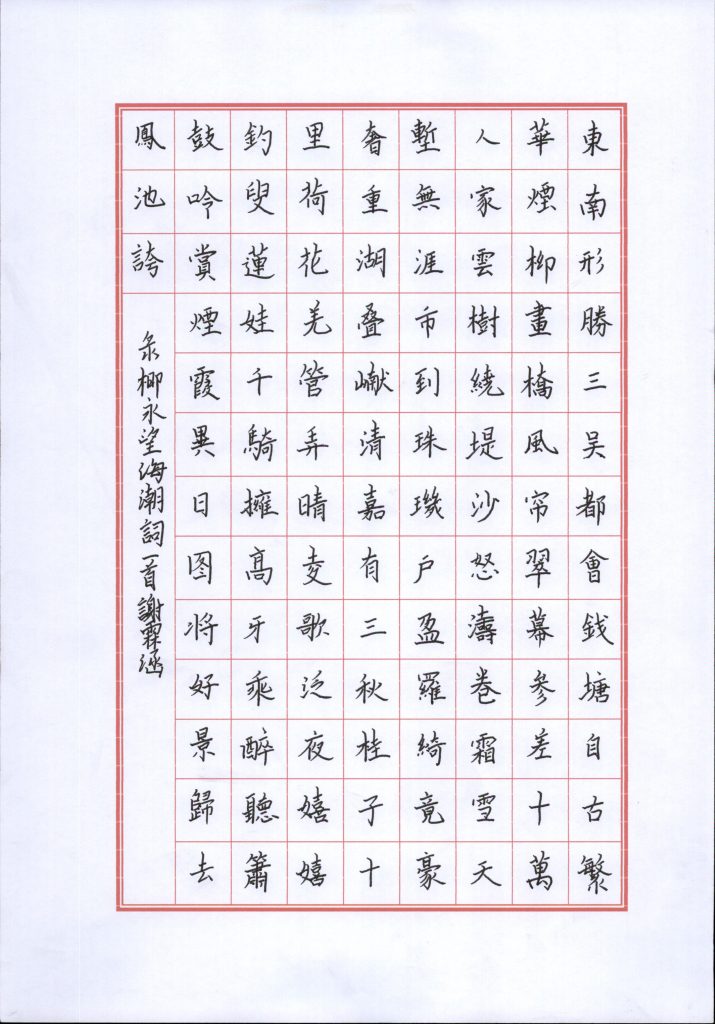 東南形勝三吴都會錢塘自古繁
華煙柳畫橋風帘翠幕參差十萬
人家雲樹繞堤沙怒濤卷霜雪天
塹無涯市到珠璣户盈羅綺竟豪
奢重湖叠巘清嘉有三秋桂子十
里荷花羌管弄晴夌歌泛夜嬉嬉
釣叟蓮娃千騎擁高牙乘醉聽簫
鼓吟賞煙霞異日图将好景歸去
鳳池誇
录柳永望海潮詞一首謝霖涵